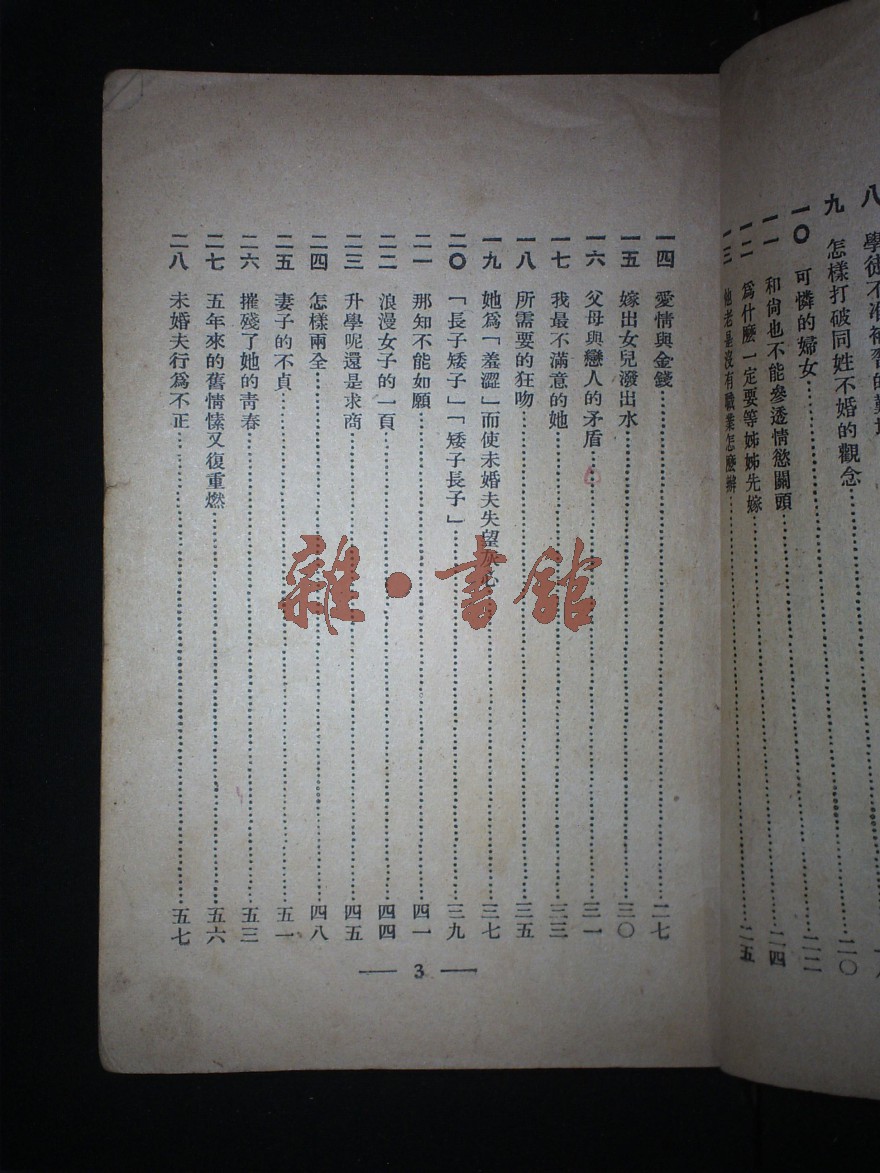 八 學徒不准補習的
九 怎樣打破同姓不婚的觀念…………二〇
一〇 可憐的婦女…………二二
一一 和尙也不能參透情慾關頭…………二四
一二 爲什麽一定要等姊姊先嫁…………二五
一三 他老是沒有職業怎麽辦…………
一四 愛情與金錢…………二七
一五 嫁出女兒潑出水…………三〇
一六 父母與戀人的矛盾…………三一
一七 我最不滿意的她…………三三
一八 所需要的狂吻…………三五
一九 她爲「羞澀」而使未婚夫失望灰心…………三七
二〇 「長子矮子」「矮子長子」…………三九
二一 那知不能如願…………四一
二二 浪漫女子的一頁…………四四
二三 升學呢還是求商…………四五
二四 怎樣兩全…………四八
二五 妻子的不貞…………五一
二六 摧殘了她的靑春…………五三
二七 五年來的舊情愫又復重燃…………五六
二八 未婚夫行爲不正…………五七
— 3 —
雜·書館